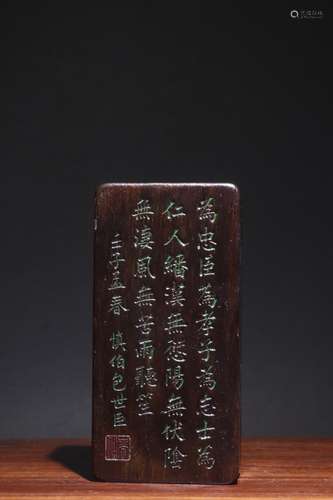 為忠臣為孝子為志士為
仁人繙漢無愆陽無伏陰
無淒風無苦雨聽笙
壬子孟春 慎伯包世臣